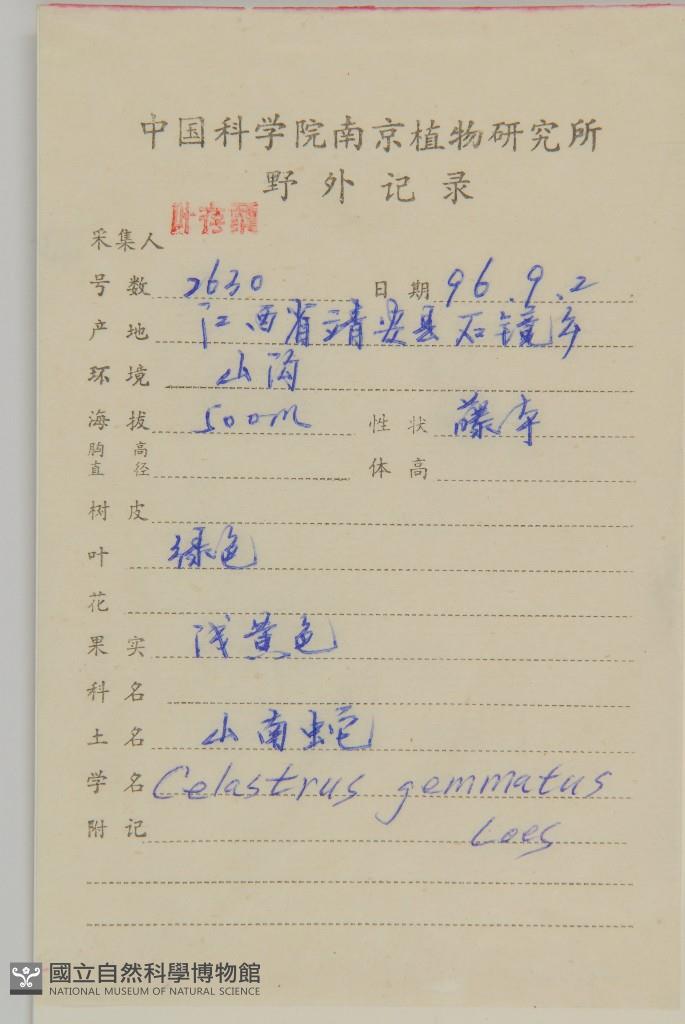 中国科学院南京植物研究所
野外记录
采集人 叶存粟
号数 2630 日期 96.9.2
产地 江西省靖安县石镜乡
环境 山沟
海拔 500m 性状 藤本
胸高直径 体高
树皮
叶 绿色
花
果实 浅黄色
科名
土名 山南蛇
学名 Celastrus gemmatus
附记 Loes
國立自然科學博物館
NATIONAL MUSEUM OF NATURAL SCIENCE